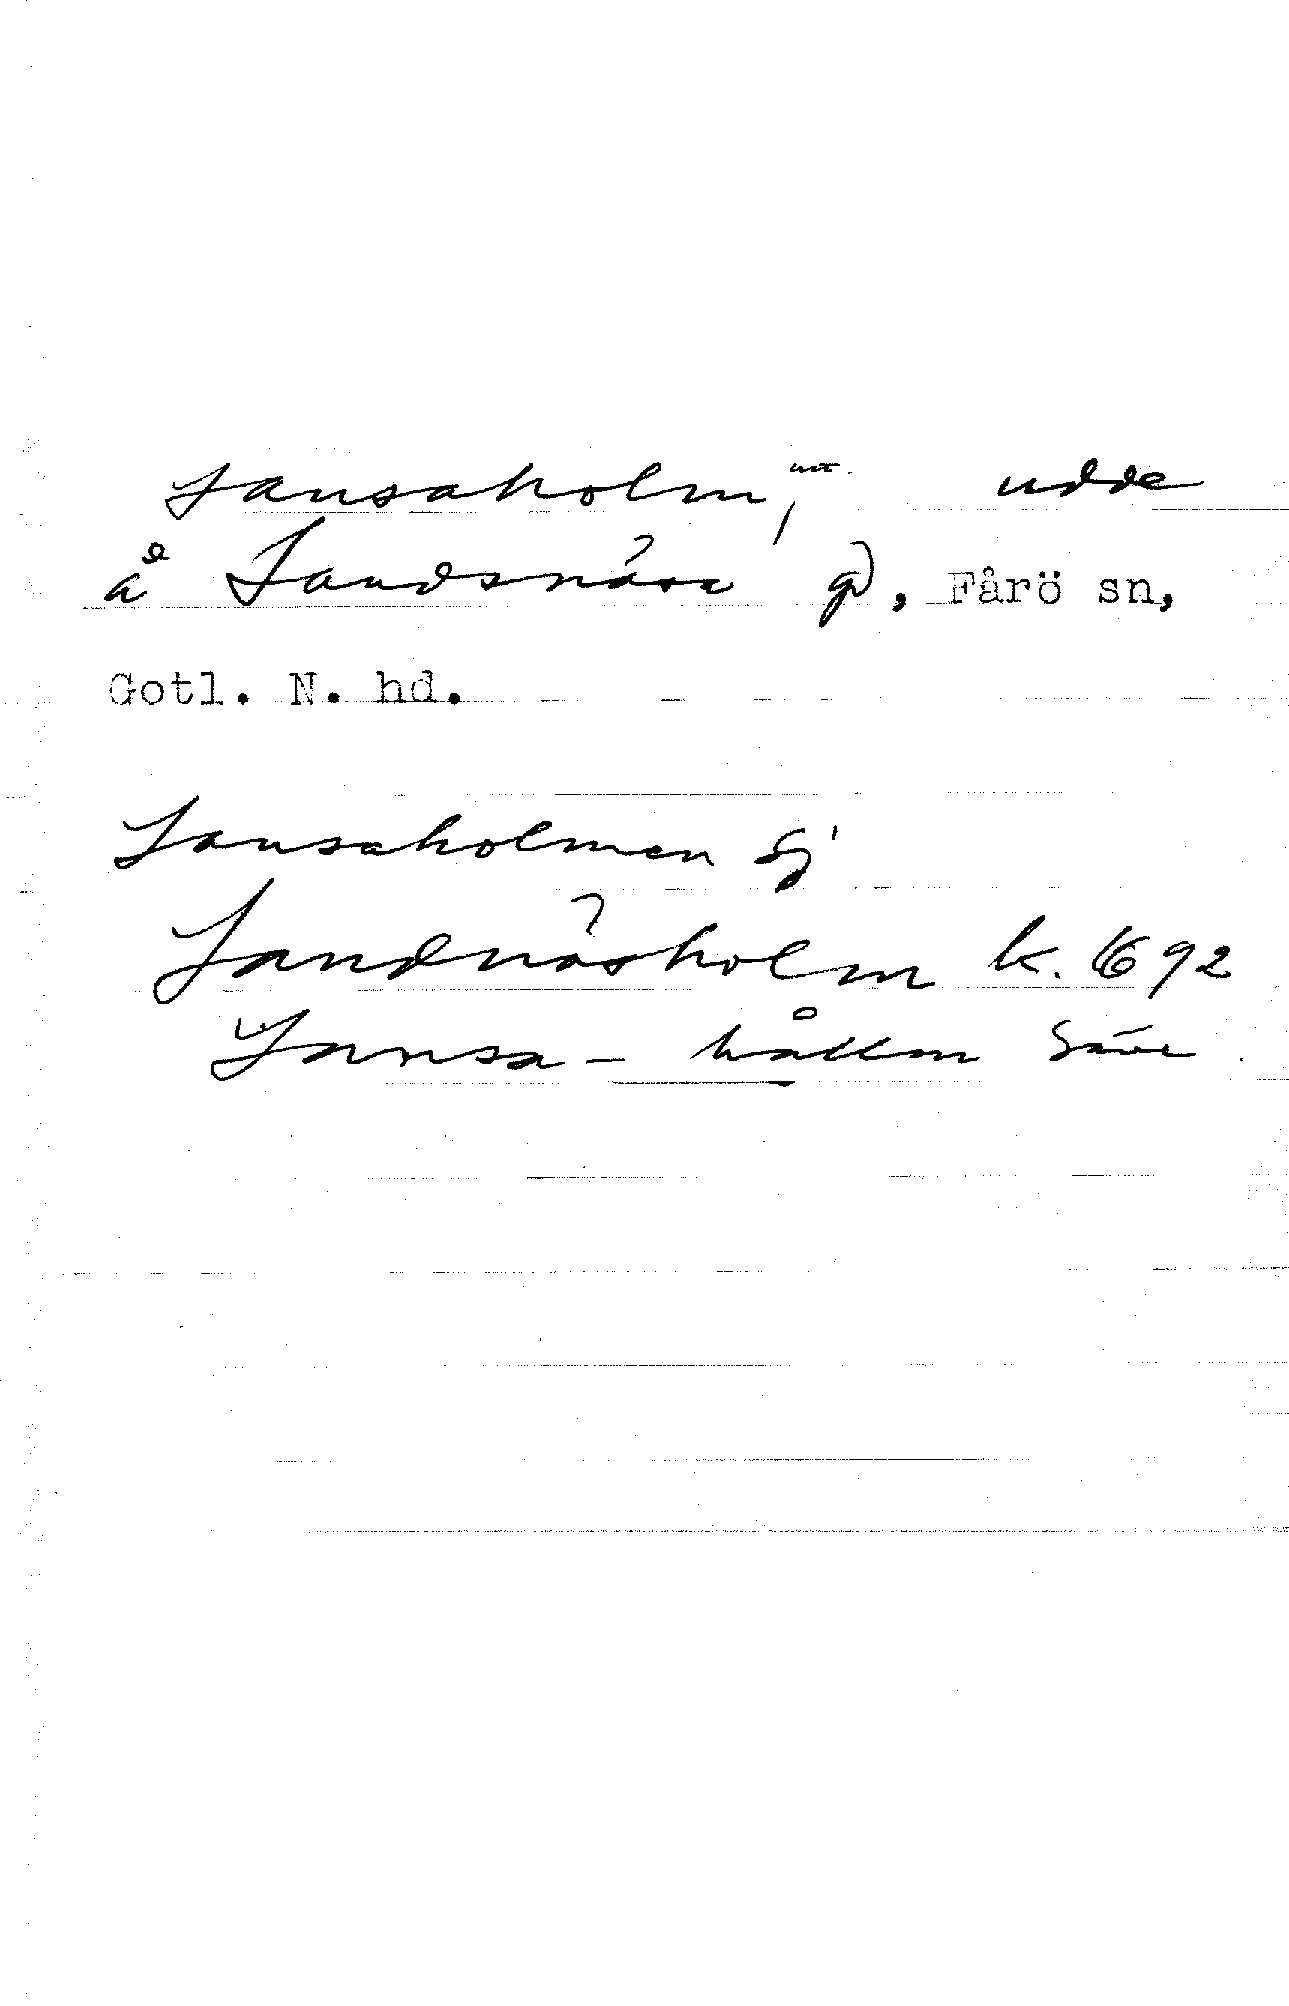 Sansaholm, udde
å Sandsnäsa gd, Fårö sn,
Gotl. N. hd.
Sansaholmen
Sandnäsholm k. 1692
Sansa- hållm Säve